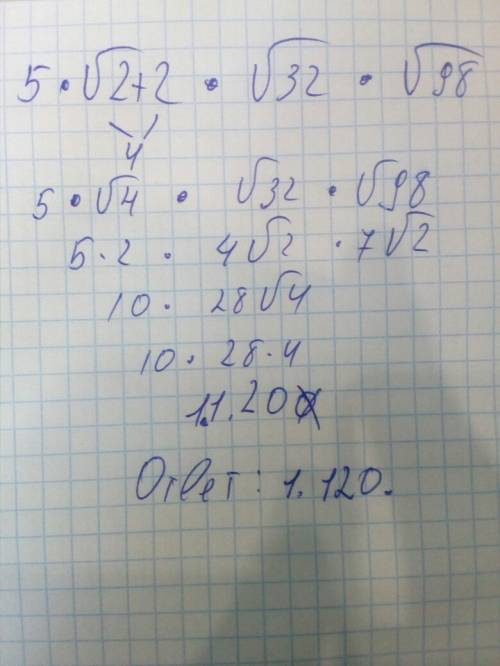 5 · √2+2 · √32 · √98
4
5 · √4 · √32 · √98
5 · 2 · 4√2 · 7√2
10 · 28√4
10 · 28 · 4
1.1.20
Ответ: 1.120.